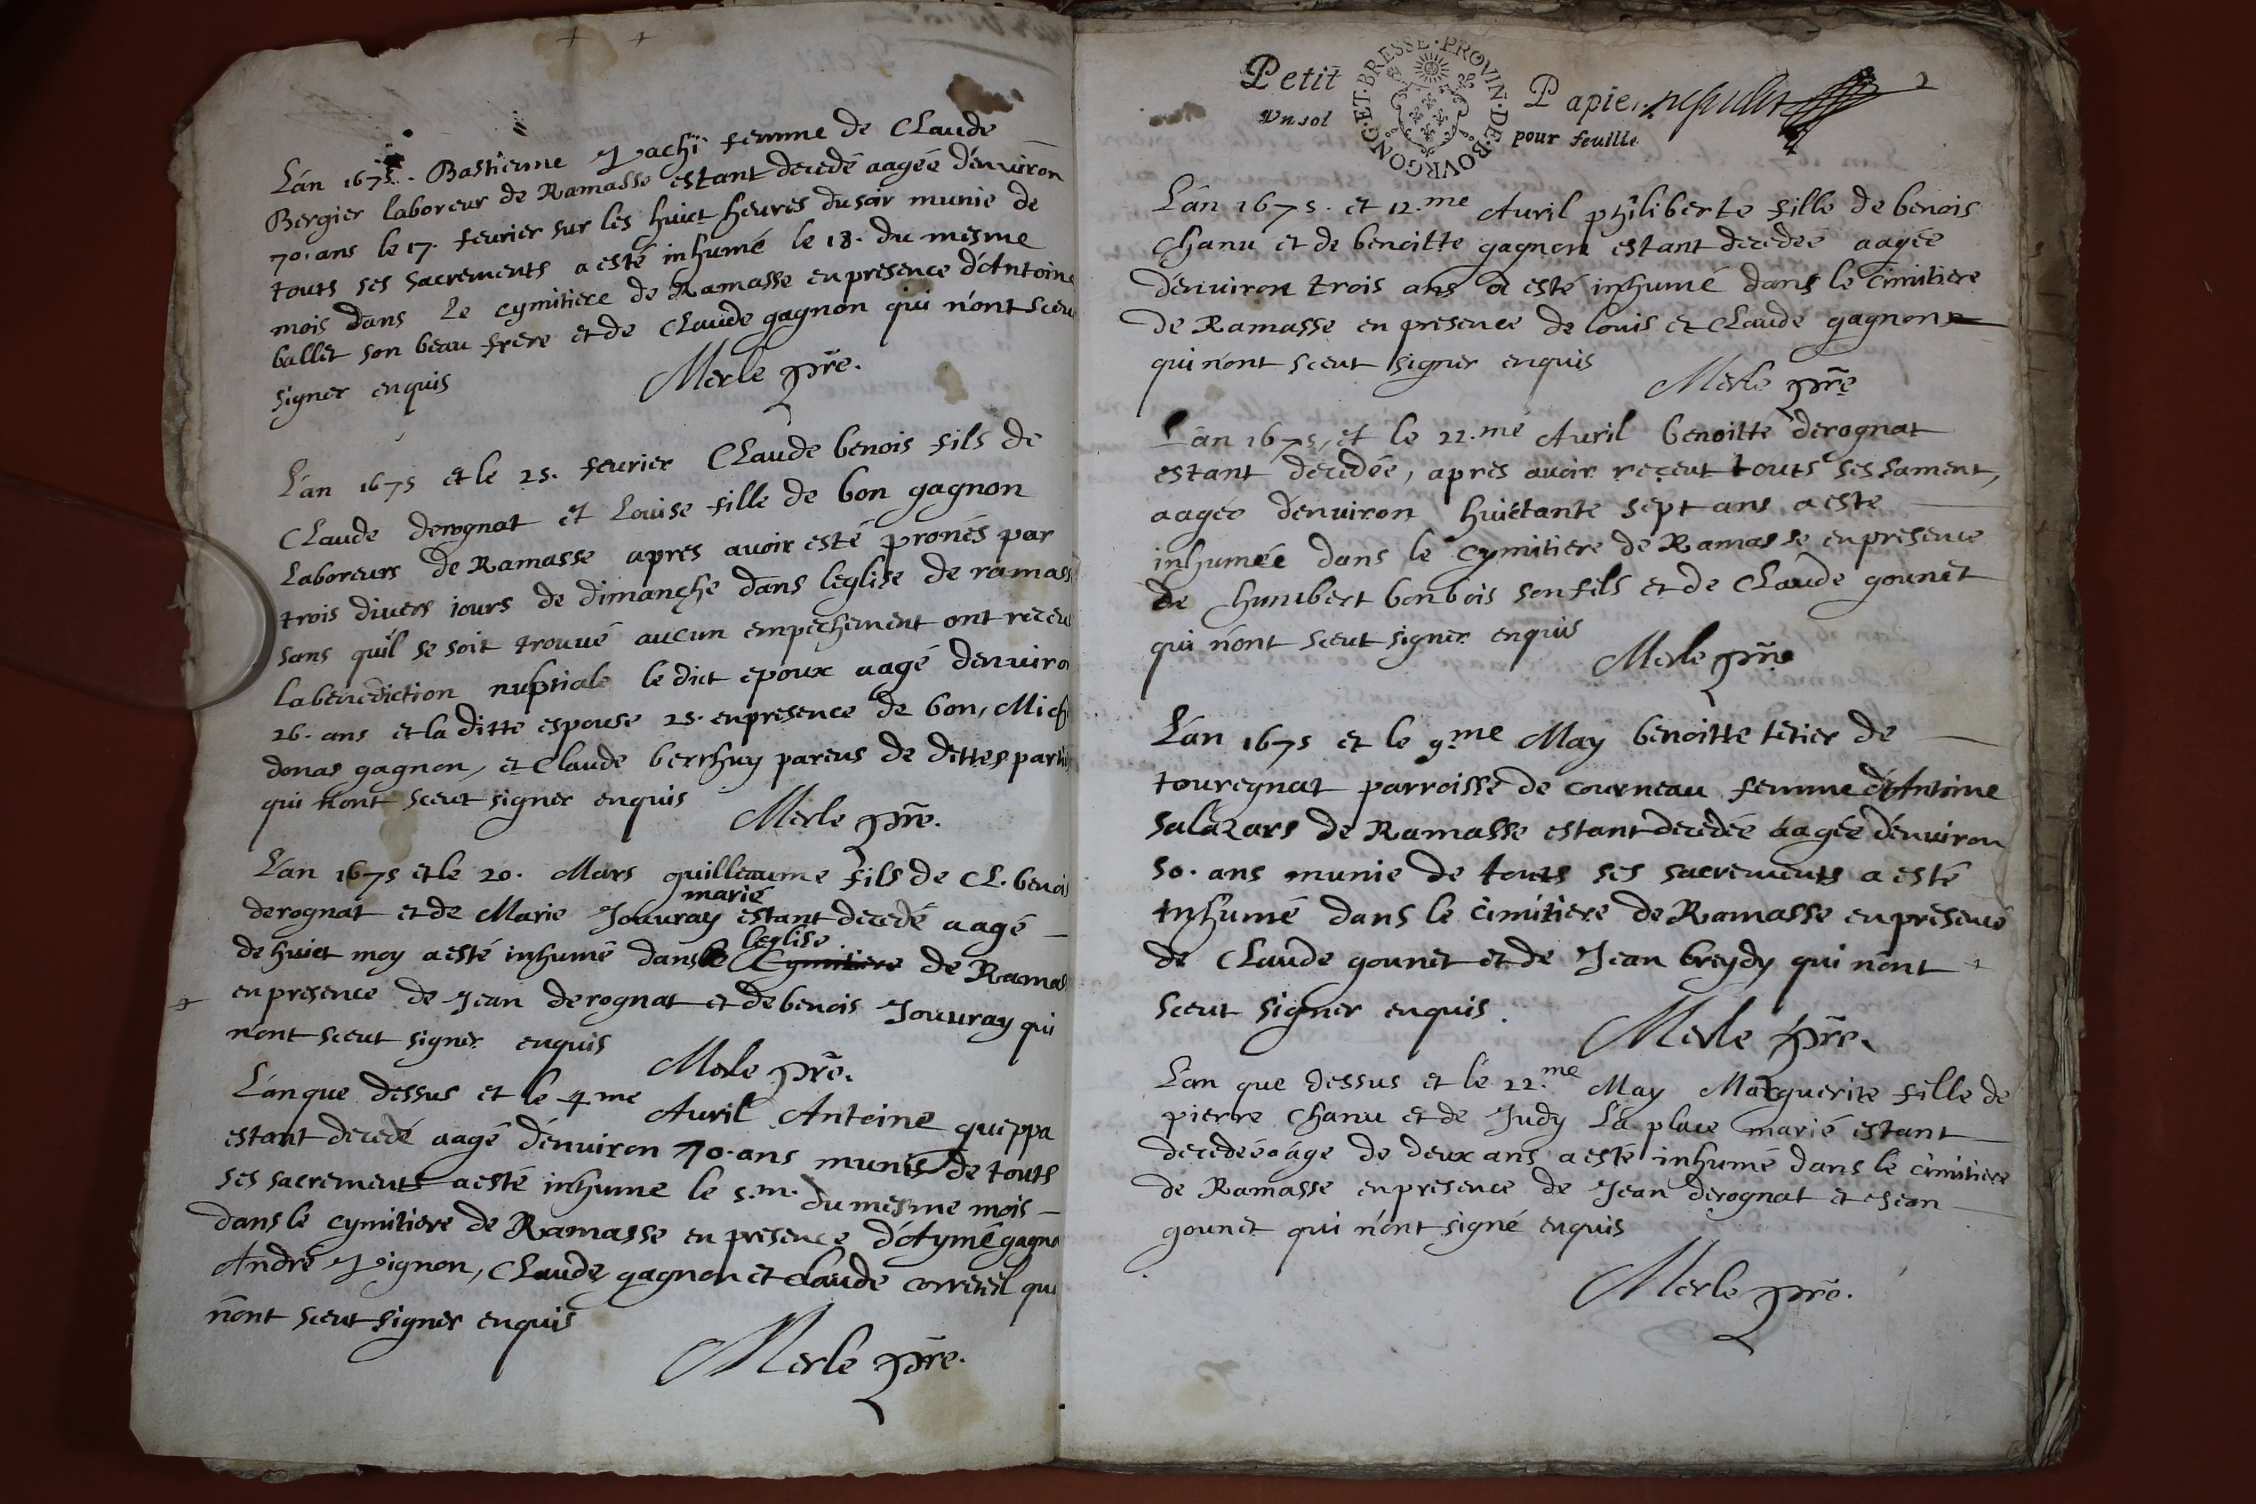 L'an 1675. Bastienne Pachi femme de Claude
Bergier laboreur de Ramasse estant decedé aagée d'environ
70. ans le 17. feurier sur les huict heures du soir munie de
touts ses sacrements a esté inhumé le 18. du mesme
mois dans le cymitiere de Ramasse en presence d'Antoine
ballet son beau frere et de Claude gagnon qui n'ont sceu
signer enquis
Merle pr̃e.
L'an 1675 et le 25. feurier Claude benois fils de
Claude derognat et Louise fille de bon gagnon
Laboreurs de Ramasse apres auoir esté pronés par
trois divers iours de dimanche dans leglise de ramass
sans quil se soit trouué aucun empechement ont receu
la benediction nuptiale le dict epoux aagé denuiro
26. ans et la ditte espouse 25. en presence de bon, Mich
donas gagnon, et Claude berthuy parens de dittes parti
qui n'ont sceut signer enquis
Merle pr̃e.
L'an 1675 et le 20. Mars guilleaume fils de Cl. benoi
derognat et de Marie Jouuray marié estant decedé aagé
de huict moy a esté inhumé dans le leglise Cymitiere de Ramas
en presence de Jean derognat et de benois Jouuray qui
n'ont sceut signer enquis
Merle pr̃e.
L'an que dessus et le 4.me Auril Antoine queppa
estant decedé aagé d'enuiron 70. ans munis de touts
ses sacrements a esté inhume le 5.m. du mesme mois
dans le cymitiere de Ramasse en presence d'Aymé gagno
André Pignon, Claude gagnon et Claude Corretel qui
n'ont sceut signer enquis
Merle pr̃e.
Petit Papier 2
Vn sol pour feuille
BRESSE · PROVIN · DE · BOVRGONG · ET ·
L'an 1675. et 12.me Auril philiberte fille de benois
Chanu et de benoitte gagnon estant decedeé aagée
d'enuiron trois ans a esté inhumé dans le cimitiere
de Ramasse en presence de louis et Claude gagnons
qui n'ont sceut signer enquis
Merle pr̃e
L'an 1675, et le 22.me Auril benoitte derognat
estant decedée, apres auoir reçeut touts ses sament,
aagée d'enuiron huictante sept ans a este
inhumée dans le cymitiere de Ramasse en presence
de humbert bonbois son fils et de Claude gounet
qui n'ont sceut signer enquis
Merle pr̃e
L'an 1675 et le 9.me May benoitte tetier de
touregnat parroisse de courneau femme d'Antoine
Salazars de Ramasse estant decedée aagée d'enuiron
50. ans munie de touts ses sacrements a esté
inhumé dans le cimitiere de Ramasse en presence
de Claude gounet et de Jean breydy qui n'ont
sceut signer enquis.
Merle pr̃e.
L'an que dessus et le 22.me May Marguerite fille de
pierre Chanu et de Judy La place marié estant
decedeé aâge de deux ans a esté inhumé dans le cimitiere
de Ramasse en presence de Jean derognat et Jean
gounet qui n'ont signé enquis
Merle pr̃e.